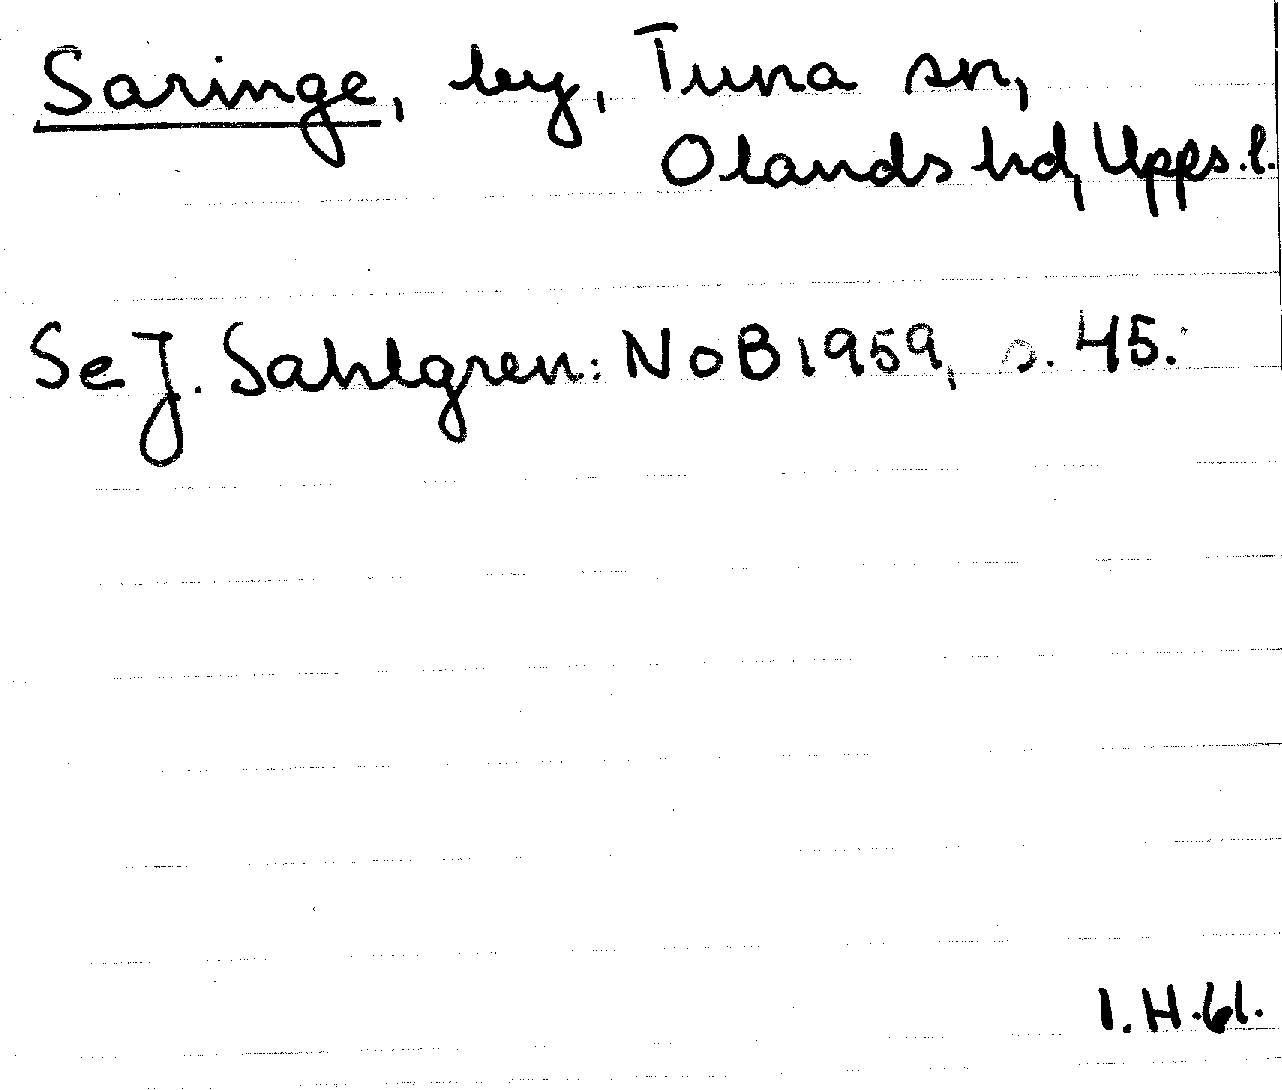 Saringe, by, Tuna sn,
Olands hd, Upps. l.
Se J. Sahlgren: NoB 1959, s. 45.
I. H. 61.